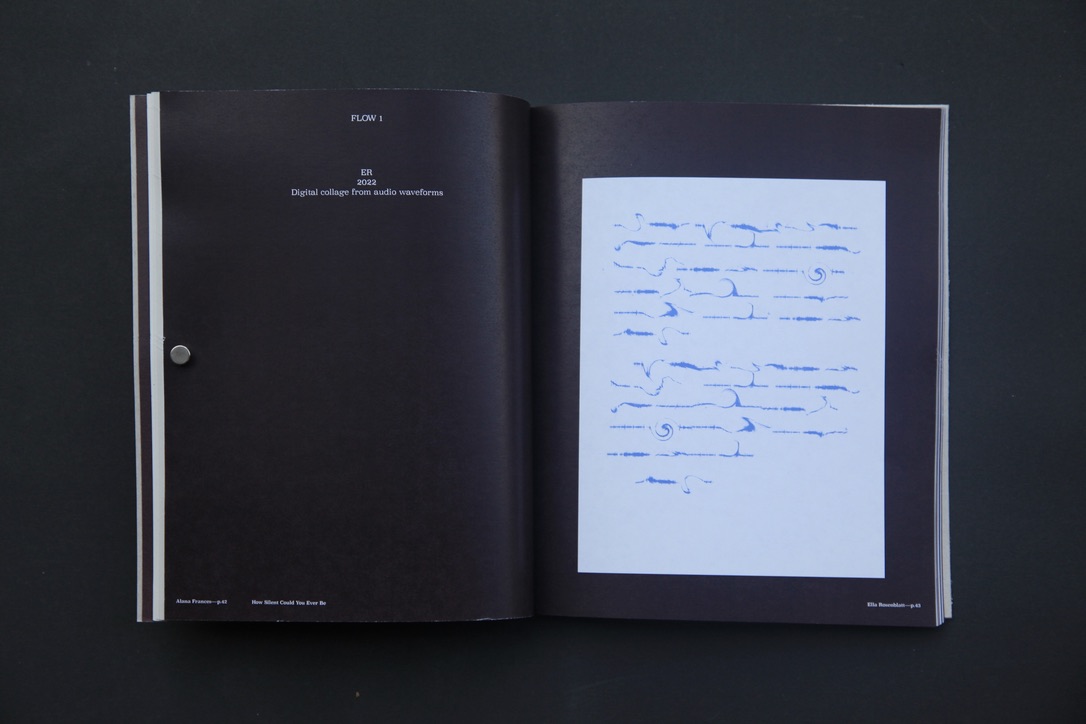 FLOW 1
ER
2022
Digital collage from audio waveforms
How Silent Could You Ever Be
Ella Rosenblatt—p.45